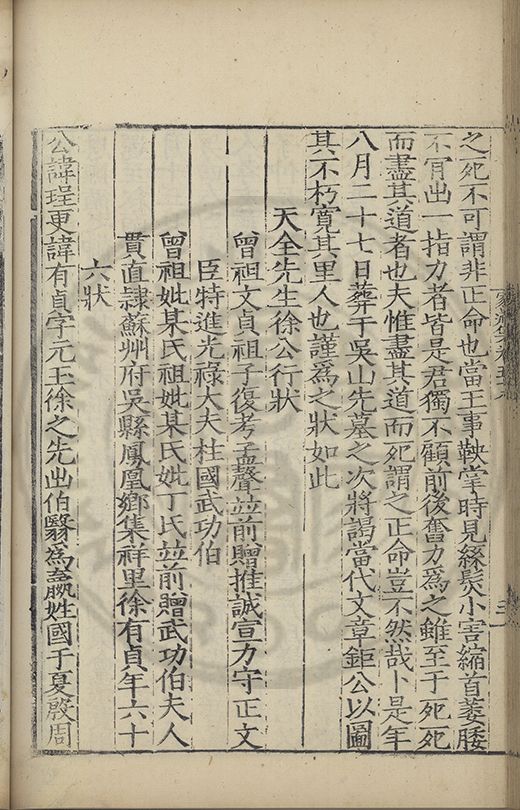 之死不可謂非正命也當王事鞅掌時見絲髮小害縮首萎腰
不肎出一指力者皆是君獨不顧前後奮力爲之雖至于死死
而盡其道者也夫惟盡其道而死謂之正命豈不然哉卜是年
八月二十七日葬于吳山先墓之次將謁當代文章鉅公以圖
其不朽寬其里人也謹爲之狀如此
天全先生徐公行狀
曾祖文貞祖子復考孟聲竝前贈推誠宣力守正文
臣特進光祿大夫柱國武功伯
曾祖妣某氏祖妣某氏妣丁氏竝前贈武功伯夫人
貫直隷蘇州府吳縣鳳凰鄉集祥里徐有貞年六十
六狀
公諱珵更諱有貞字元玉徐之先出伯翳爲嬴姓國于夏殷周